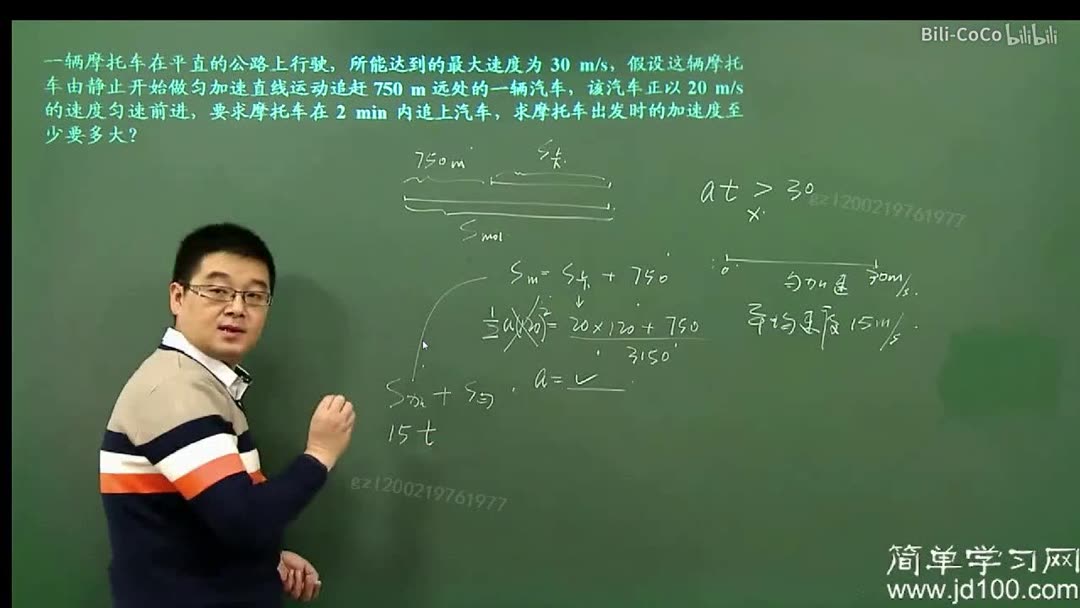 Bili-CoCo bilibili
一辆摩托车在平直的公路上行驶，所能达到的最大速度为 30 m/s，假设这辆摩托
车由静止开始做匀加速直线运动追赶 750 m 远处的一辆汽车，该汽车正以 20 m/s
的速度匀速前进，要求摩托车在 2 min 内追上汽车，求摩托车出发时的加速度至
少要多大？
750m S卡
at > 30
x
gzl200219761977
S mol
0 30m/s
匀加速
Sm = S卡 + 750
平均速度 15m/s
½a(120)² = 20×120 + 750
3150
S加 + S匀
a = ✓
15t
gzl200219761977
简单学习网
www.jd100.com